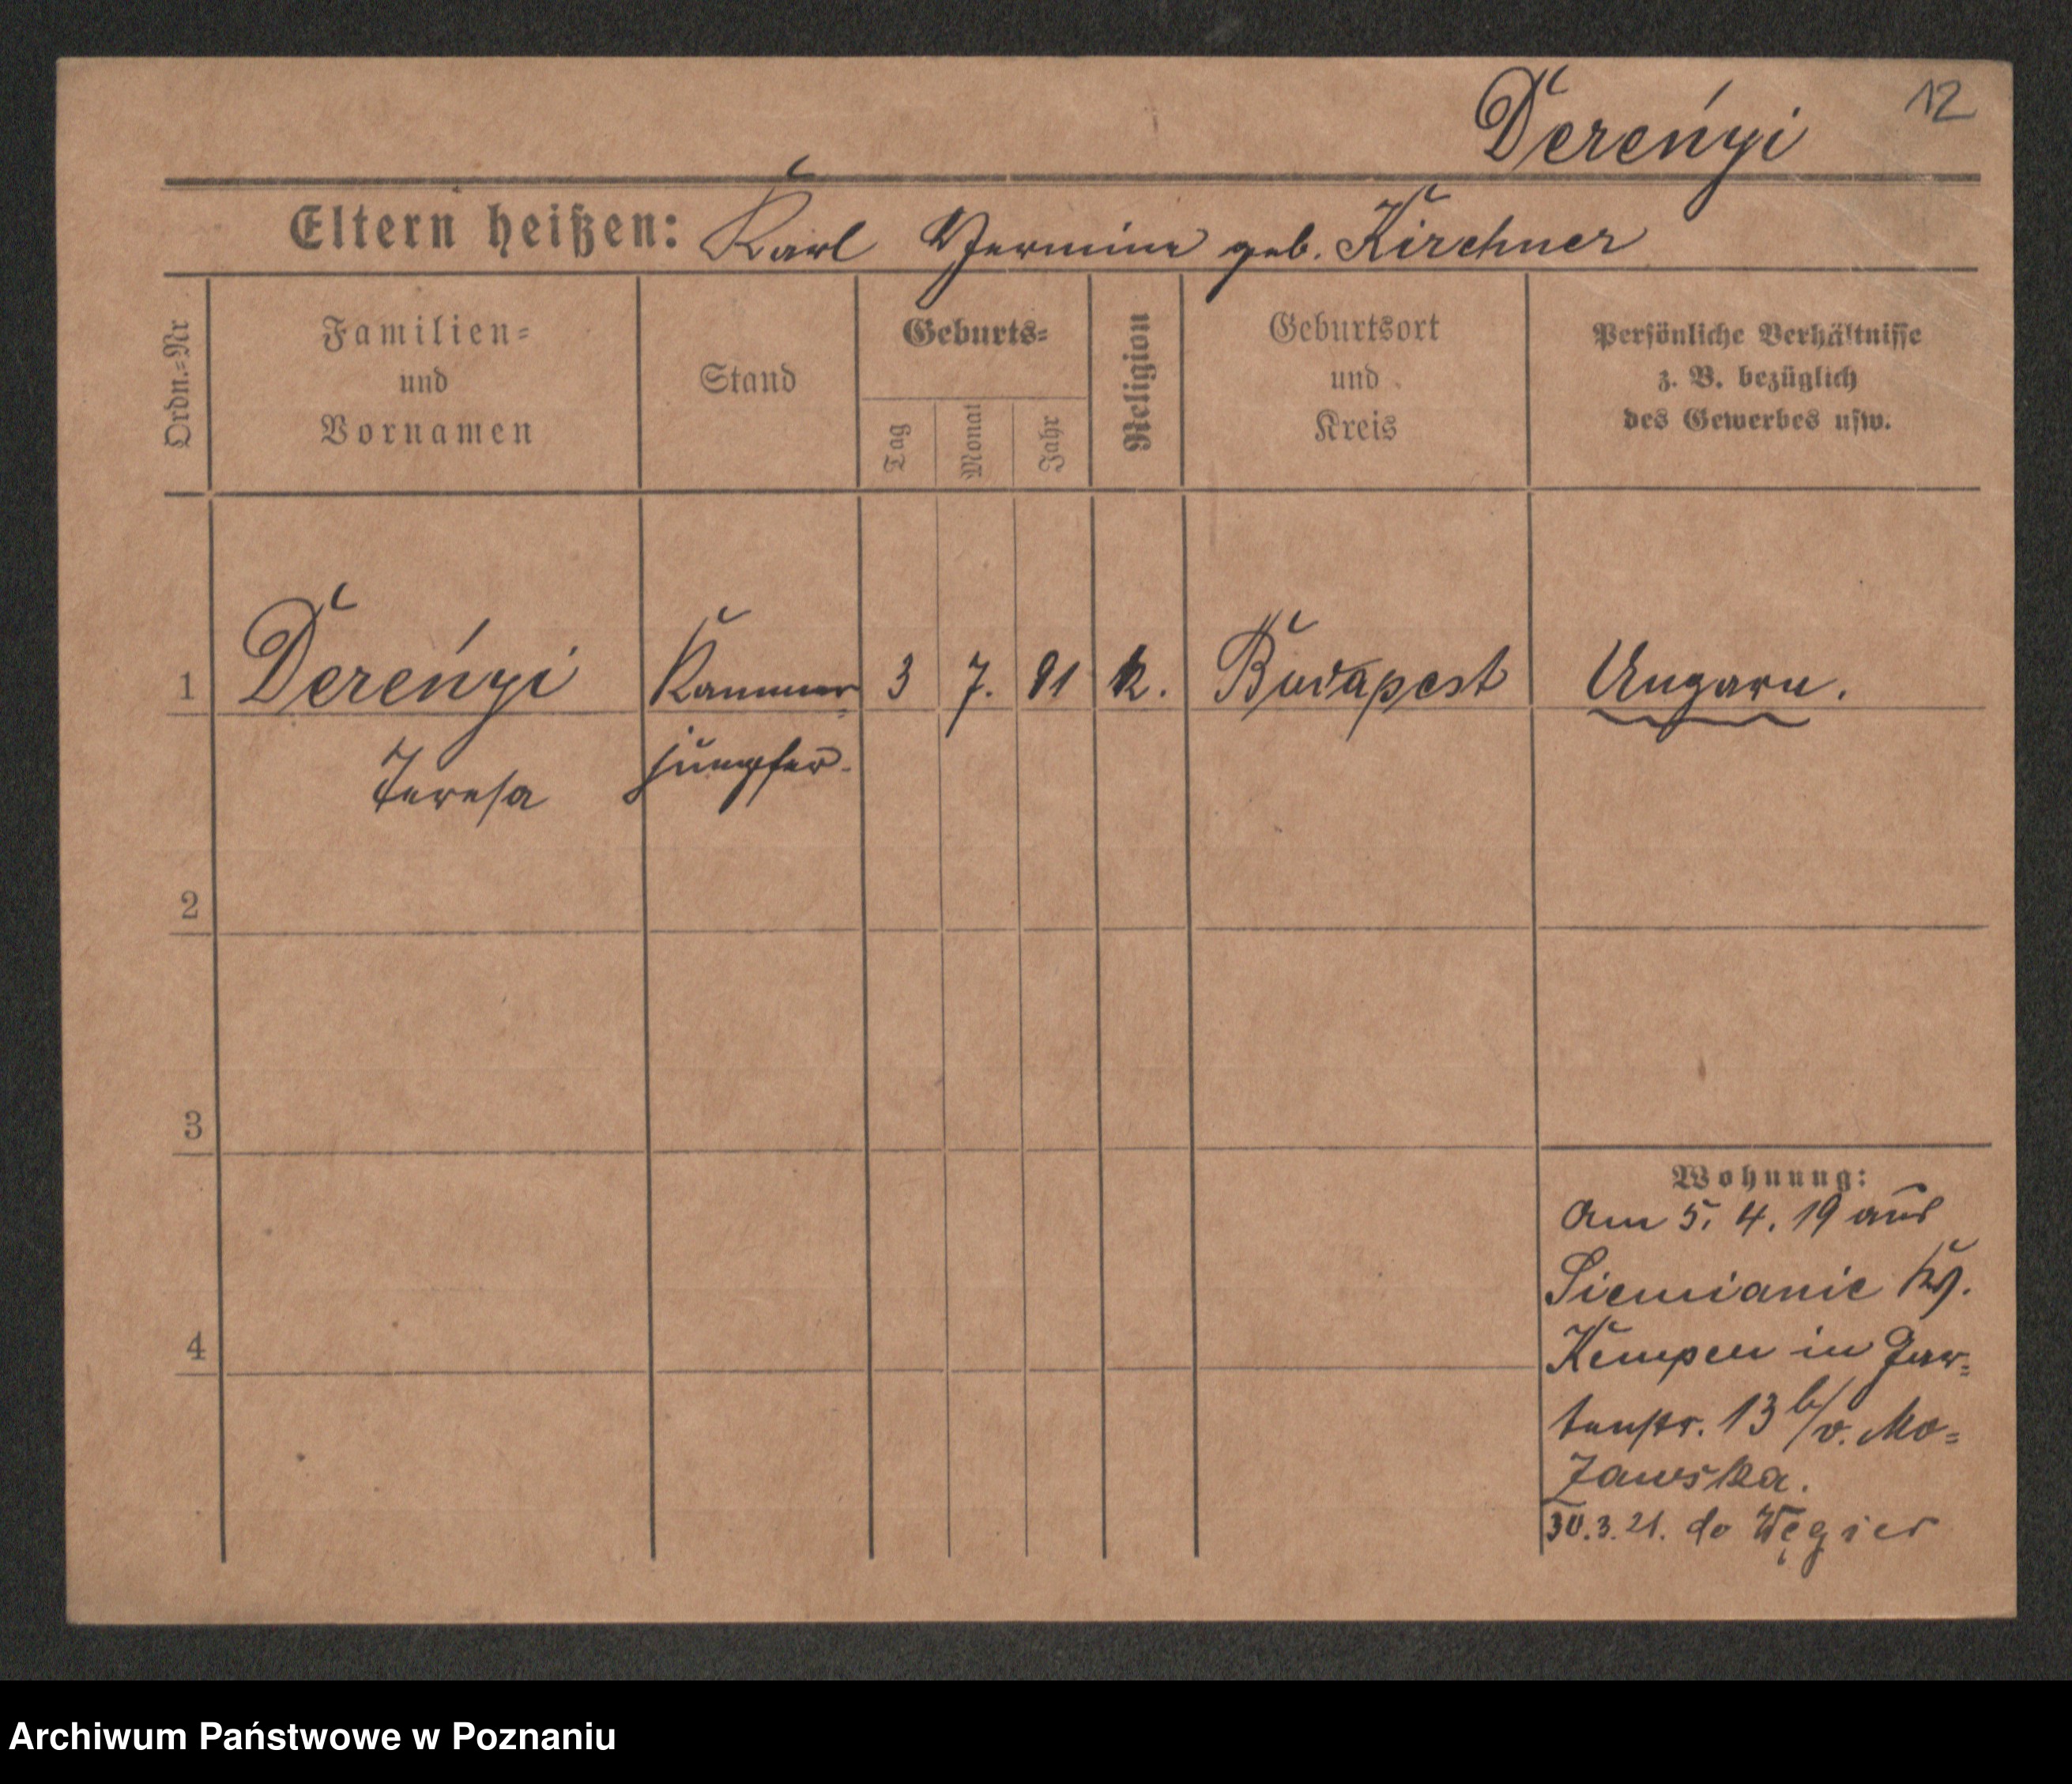 12
Dereńyi
Eltern heißen: Karl Hermine geb. Kirchner
Ordn.=Nr
Familien=
und
Vornamen
Stand
Geburts=
Tag
Monat
Jahr
Religion
Geburtsort
und
Kreis
Persönliche Verhältnisse
z. B. bezüglich
des Gewerbes usw.
1 Dereńyi Kammer= 3 7. 81 k. Budapest Ungarn.
Teresa jungfer.
2
3
4
Wohnung:
Am 5. 4. 19 aus
Siemianic Kr.
Kempen in Gar=
tenstr. 13 b/v. Mo=
zawska.
30.3.21. do Węgier
Archiwum Państwowe w Poznaniu